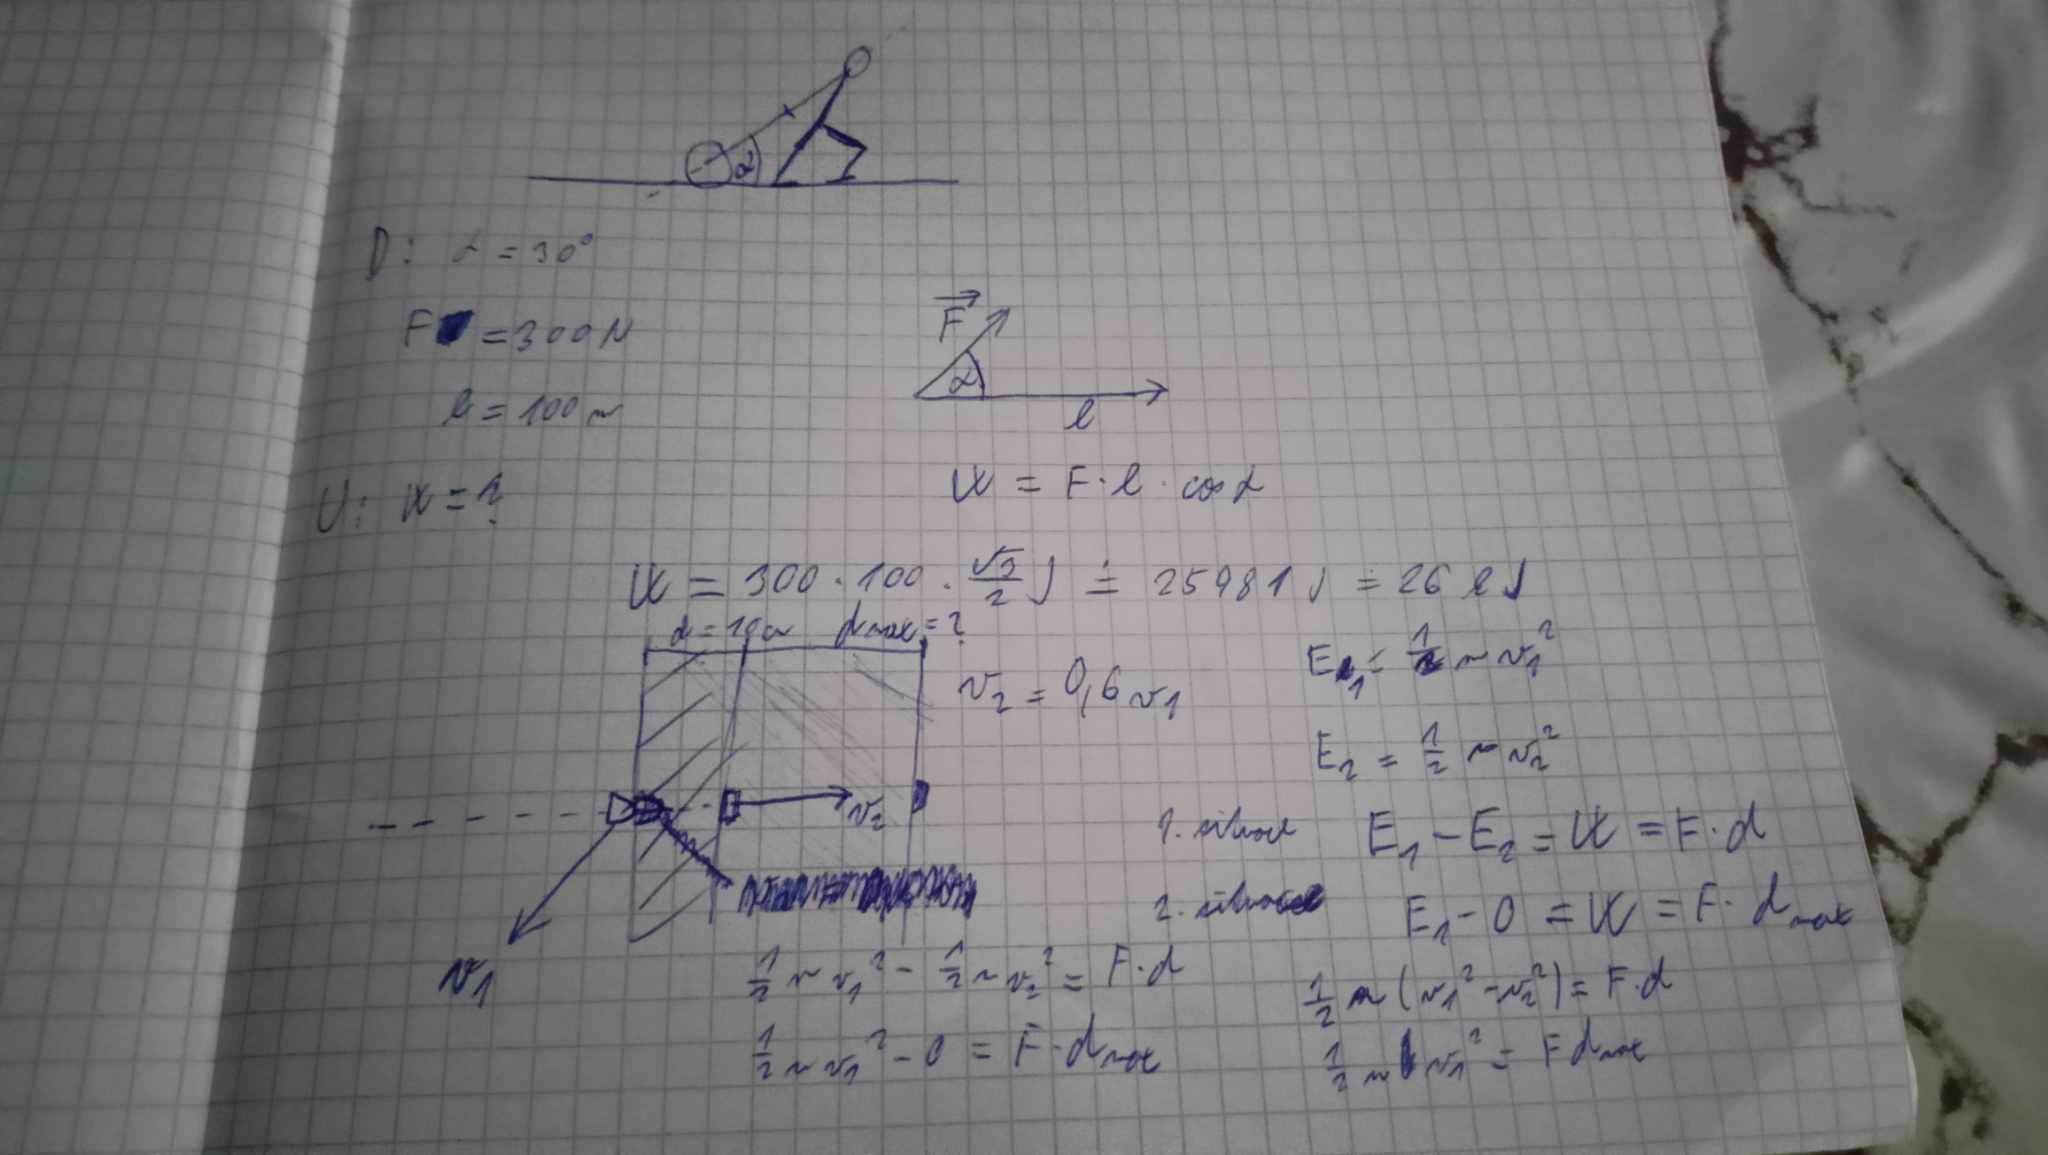 α
D: α = 30°
F = 300 N
l = 100 m
U: W = ?
F
α
l
W = F · l · cos α
W = 300 · 100 · √3/2 J ≐ 25981 J ≐ 26 kJ
d = 10 cm dmax = ?
v₂ = 0,6 v₁
E₁ = 1/2 m v₁²
E₂ = 1/2 m v₂²
v₂
v₁
1. situace E₁ - E₂ = W = F · d
2. situace E₁ - 0 = W = F · dmax
1/2 m v₁² - 1/2 m v₂² = F · d
1/2 m v₁² - 0 = F · dmax
1/2 m (v₁² - v₂²) = F · d
1/2 m v₁² = F dmax